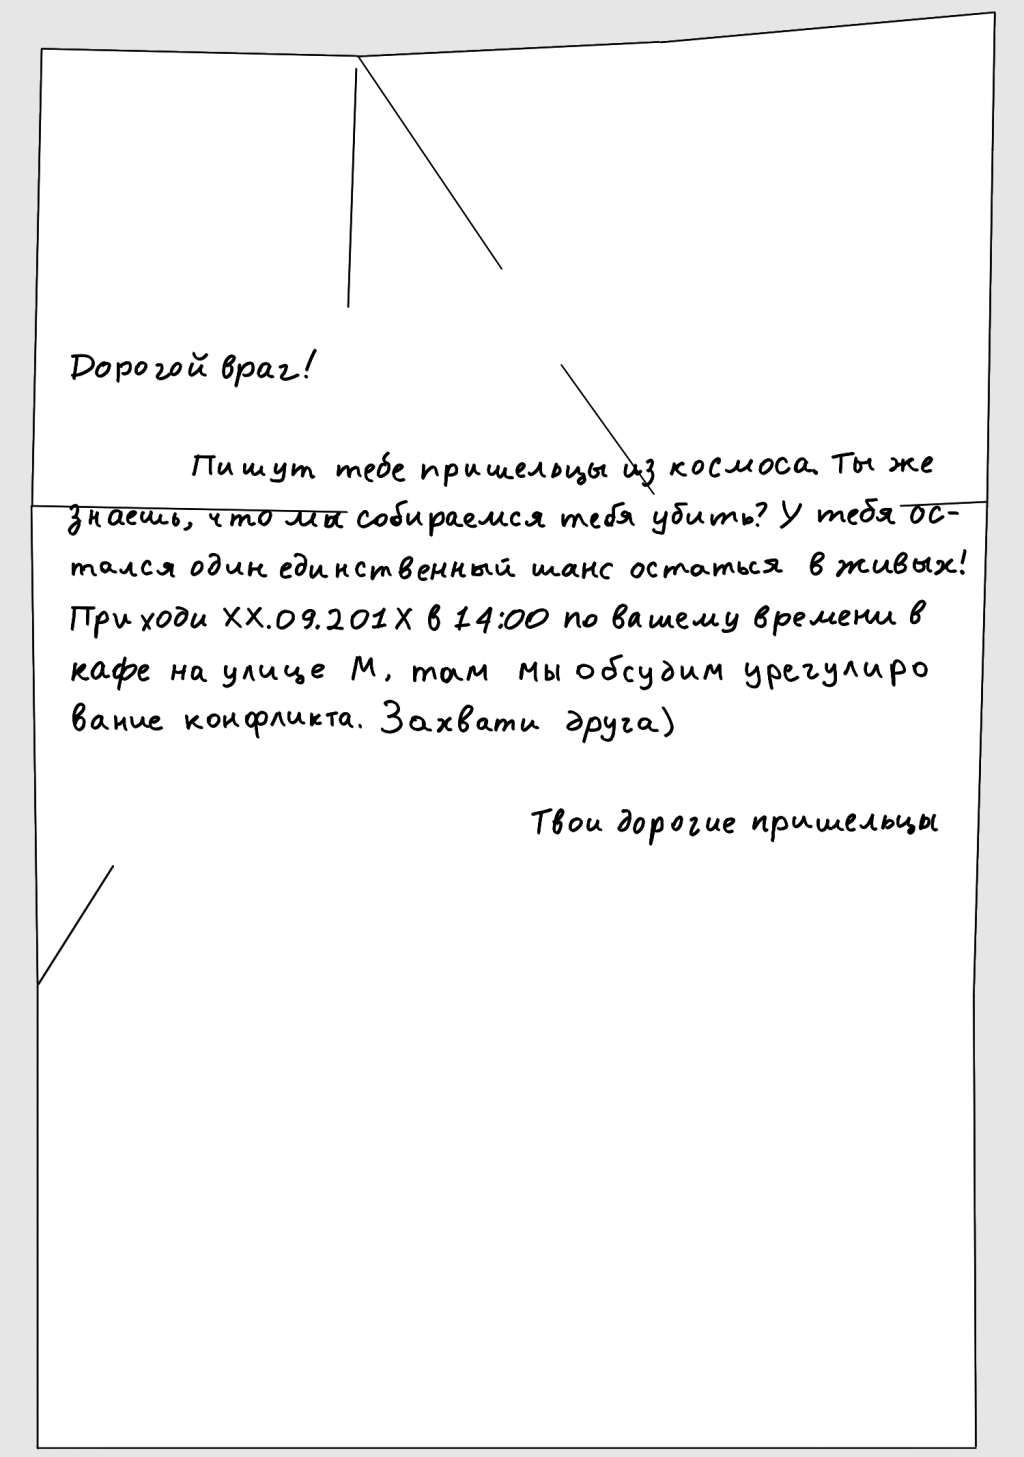 Дорогой враг!
Пишут тебе пришельцы из космоса. Ты же
знаешь, что мы собираемся тебя убить? У тебя ос-
тался один единственный шанс остаться в живых!
Приходи XX.09.201X в 14:00 по вашему времени в
кафе на улице М, там мы обсудим урегулиро
вание конфликта. Захвати друга)
Твои дорогие пришельцы